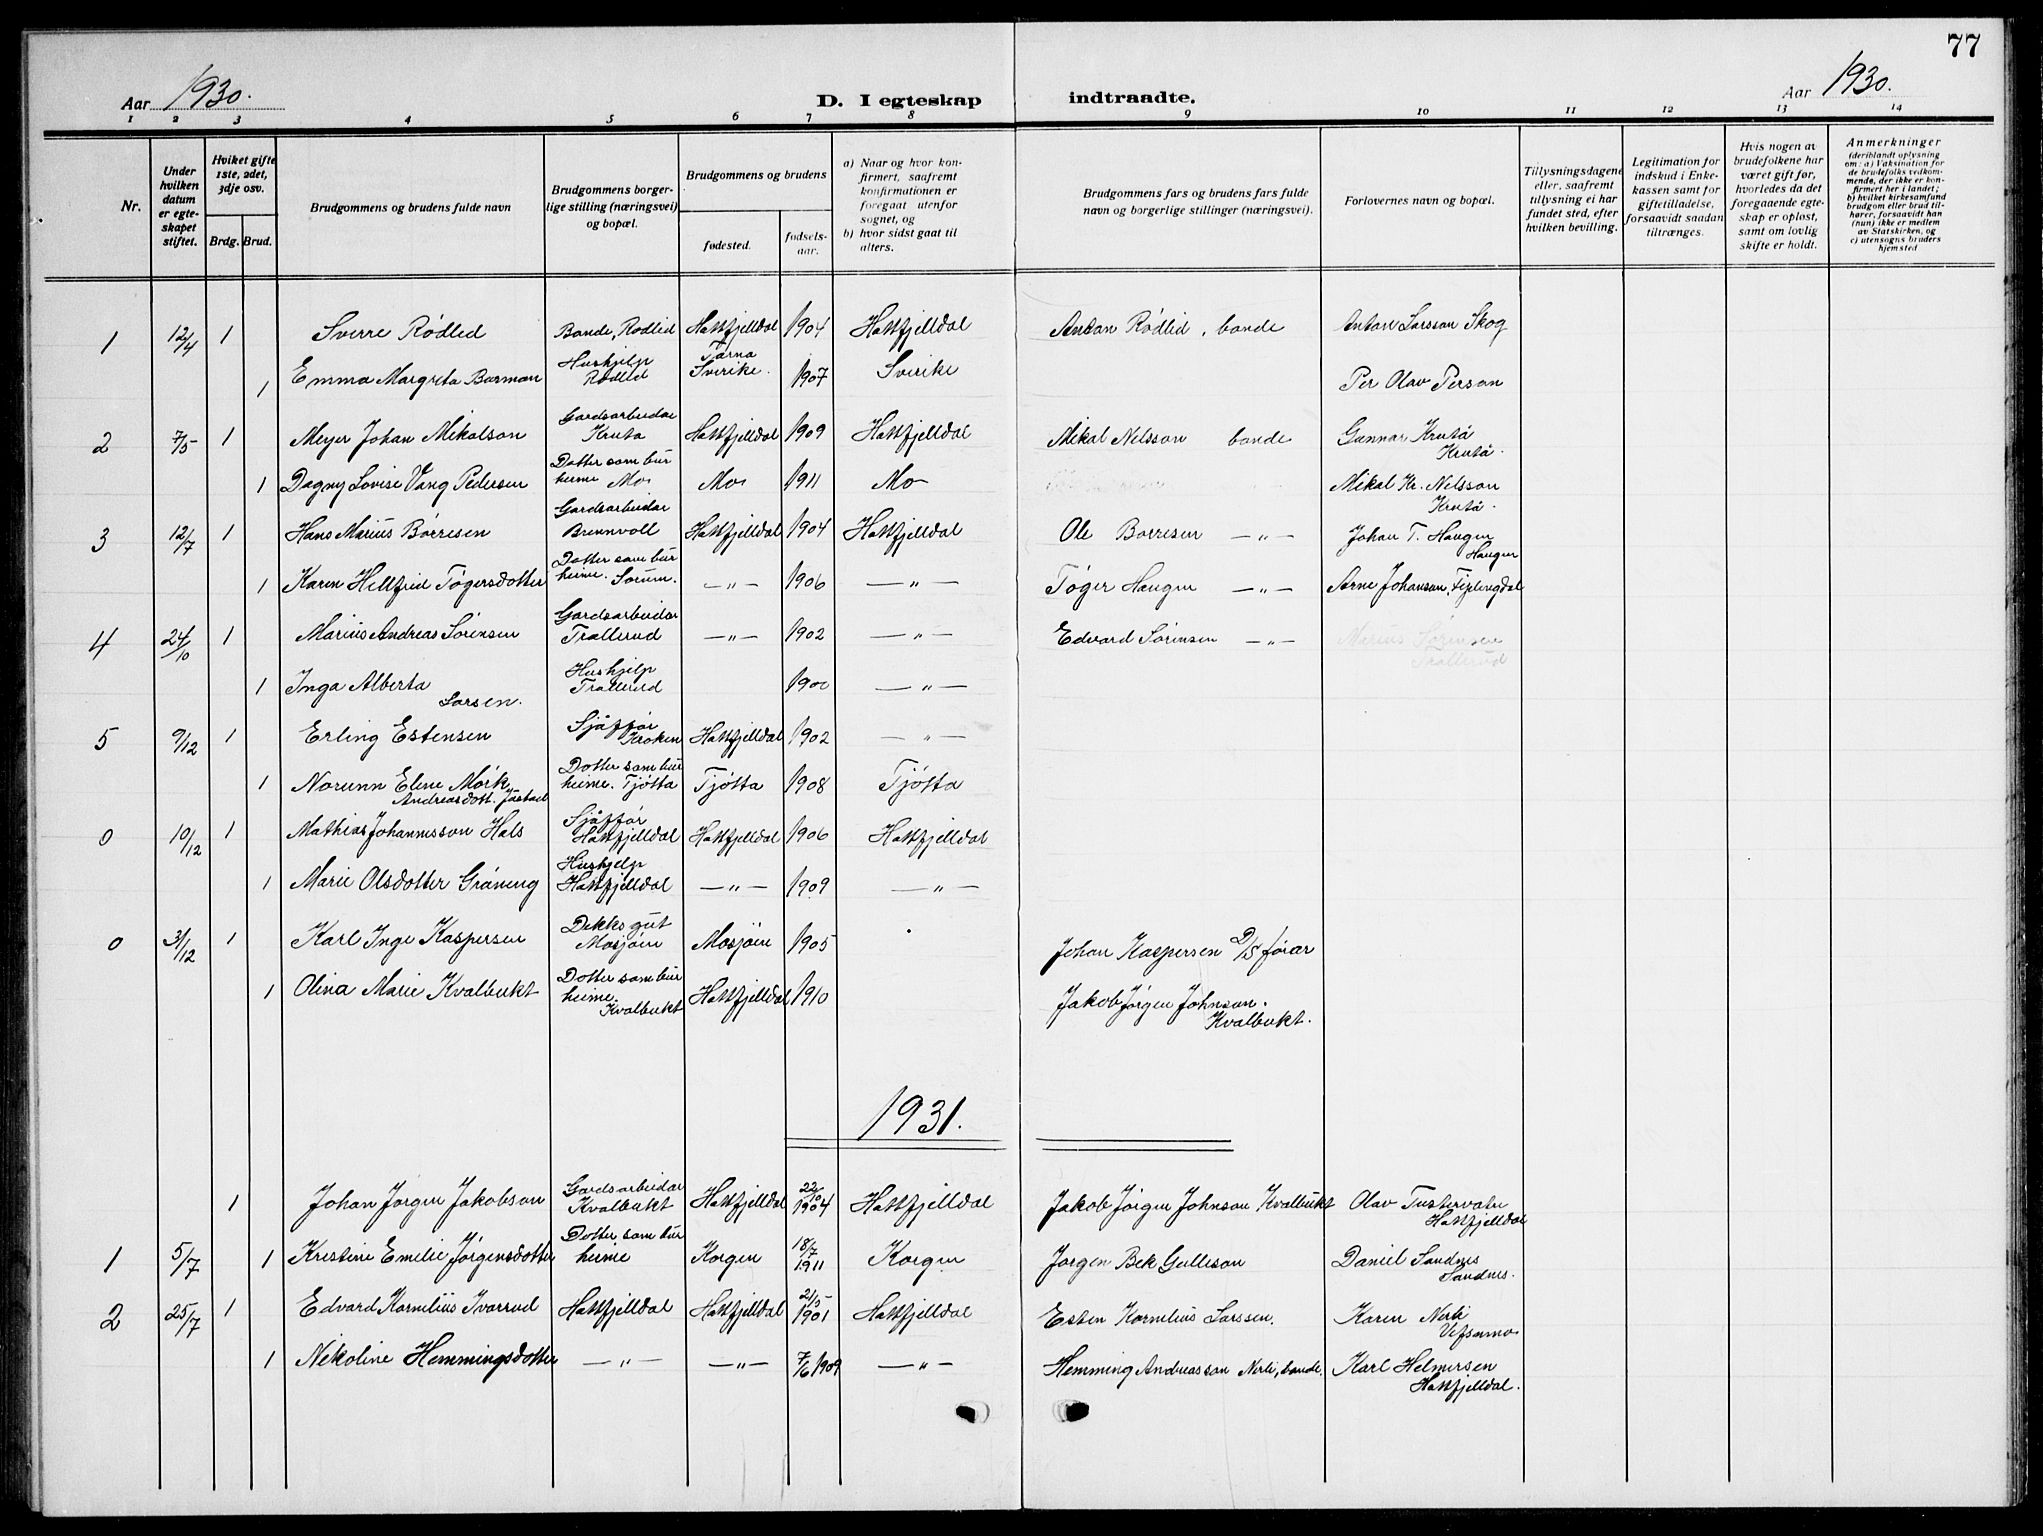 77
Aar 1930.
D. I egteskap indtraadte.
Aar 1930.
1 2 3 4 5 6 7 8 9 10 11 12 13 14
Nr.
Under hvilken datum er egteskapet stiftet.
Hviket gifte 1ste, 2det, 3dje osv.
Brdg. Brud.
Brudgommens og brudens fulde navn
Brudgommens borgerlige stilling (næringsvei) og bopæl.
Brudgommens og brudens
fødested.
fødselsaar.
a) Naar og hvor konfirmert, saafremt konfirmationen er foregaat utenfor sognet, og
b) hvor sidst gaat til alters.
Brudgommens fars og brudens fars fulde navn og borgerlige stillinger (næringsvei).
Forlovernes navn og bopæl.
Tillysningsdagene eller, saafremt tillysning ei har fundet sted, efter hvilken bevilling.
Legitimation for indskud i Enkekassen samt for giftetilladelse, forsaavidt saadan tiltrænges.
Hvis nogen av brudefolkene har været gift før, hvorledes da det foregaaende egteskap er opløst, samt om lovlig skifte er holdt.
Anmerkninger
(deriblandt oplysning om: a) Vaksination for de brudefolks vedkommende, der ikke er konfirmert her i landet; b) hvilket kirkesamfund brudgom eller brud tilhører, forsaavidt han (hun) ikke er medlem av Statskirken, og c) utensogns bruders hjemsted
1 12/4 1 Sverre Rødlid Bonde, Rødlid Hattfjelldal 1904 Hattfjelldal Anton Rødlid, bonde Anton Larsson Skog
1 Emma Margreta Barman Hushjelp Rødlid Tärna Sverike. 1907 Sverike Per Olav Person
2 7/5 1 Meyer Johan Mikalson Gardsarbeidar Kruta Hattfjelldal 1909 Hattfjelldal Mikal Nelsson bonde Gunnar Krutå Krutå.
1 Dagny Lovise Vang Pedersen Dotter som bur heime Mo Mo 1911 Mo Mikal Kr. Nelsson Krutå.
3 12/7 1 Hans Marius Børresen Gardsarbeidar Brennvoll Hattfjelldal 1904 Hattfjelldal Ole Børresen —„— Johan T. Haugen Haugen
1 Karen Hellfrid Tøgersdotter Dotter som bur heime. Sørum. —„— 1906 —„— Tøger Haugen —„— Arne Johanson, Fiplingdal
4 24/10 1 Marius Andreas Sørensen Gardsarbeidar Trallerud —„— 1902 —„— Edvard Sørensen —„— Marius Sørensen Trallerud
1 Inga Alberta Larsen. Hushjelp Trallerud 1900 —„—
5 9/12 1 Erling Estensen Sjåffør Kroken Hattfjelldal 1902 —„—
1 Norunn Elene Mørk Andreasdott. Jøstad Dotter som bur heime. Tjøtta Tjøtta 1908 Tjøtta
0 10/12 1 Mathias Johannesson Hals Sjåffør Hattfjelldal Hattfjelldal 1906 Hattfjelldal
1 Marie Olsdotter Grøneng Hushjelp Hattfjelldal —„— 1909 —„—
0 31/12 1 Karl Inge Kaspersen Dekksgut Mosjøen Mosjøen 1905 Johan Kaspersen D/S førar
1 Olina Marie Kvalbukt Dotter som bur heime. Kvalbukt Hattfjelldal 1910 Jakob Jørgen Johnson. Kvalbukt.
1931.
1 Johan Jørgen Jakobson Gardsarbeidar Kvalbukt Hattfjelldal 22/10 1904 Hattfjelldal Jakob Jørgen Johnson Kvalbukt Olav Tustervatn Hattfjelldal
1 5/7 1 Kristine Emilie Jørgensdotter Dotter som bur heime Korgen 18/7 1911 Korgen Jørgen Bek Gulleson Daniel Sandnes Sandnes.
2 25/7 1 Edvard Kornelius Ivarrud Hattfjelldal Hattfjelldal 21/5 1901 Hattfjelldal Esten Kornelius Larssen. Karen Nerli Vefsenmo
1 Nikoline Hemmingsdotter —„— —„— 7/6 1909 —„— Hemming Andreasson Nerli, bonde. Karl Helmersen Hattfjelldal.